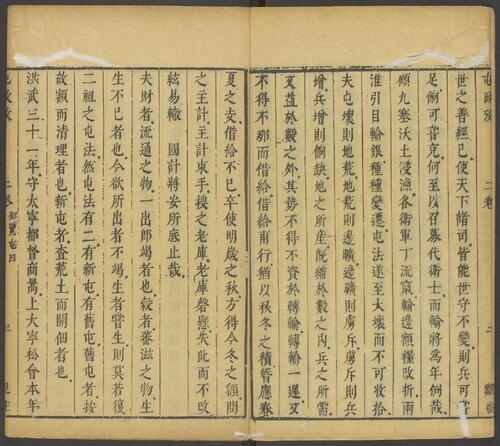 世之善經已使天下諸司皆能世守不變則兵可
足餉可膏克何至以召募代衛士而輸將為年例哉
顧九塞沃土浸漁各衛軍丁流竄輸邊額糧改折兩
淮引目輸銀種種變遷屯法遂至大壞而不可收拾
夫屯壞則地荒地荒則邊曠邊曠則虜斥虜斥則兵
增兵增則餉缺地之所產既縮於穀之內兵之所需
又益於穀之外其勢不得不資於轉輸轉輸一遲又
不得不那而借給借給甫行猶以秋冬之積督應春
夏之支借給不已卒使明歲之秋方得今冬之額問
之主計主計束手搜之老庫老庫罄懸失此而不改
絃易轍 國計將安所底止哉
夫財者流通之物一出即竭者也穀者蕃滋之物生
生不已者也今欲所出者不竭生者皆生則莫若復
二祖之屯法然屯法有二有新屯有舊屯舊屯者按
故額而清理者也新屯者查荒土而開佃者也
洪武三十一年守大寧都督商暠上大寧松會本年
屯政考 二卷